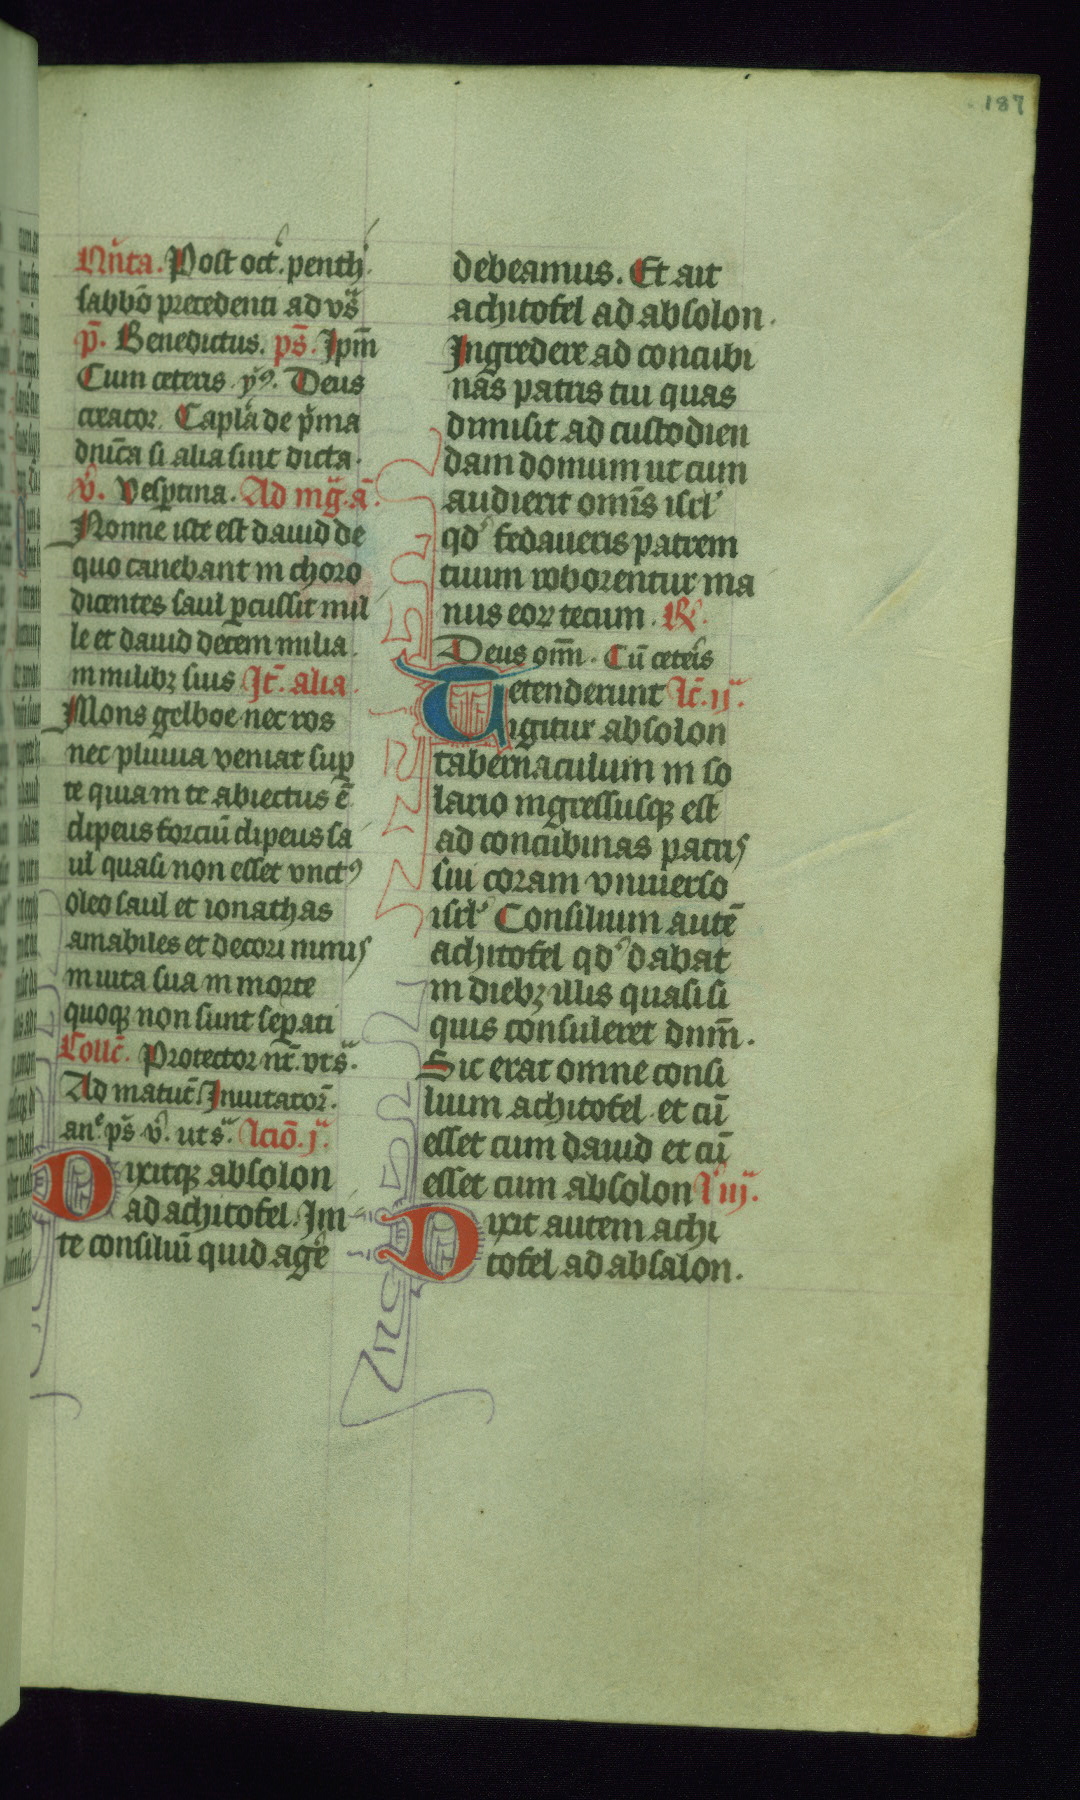 187
Nūta. Post oct̄. penth̄.
sabbō precedenti ad vs̄
p̄. Benedictus. ps̄. Ipm̄
Cum ceteris. yꝰ. Deus
creator. Capla de pͥma
dnīca si alia sint dicta.
v̄. Vesꝑtina. Ad mḡ. ā.
Nonne iste est dauid de
quo canebant in choro
dicentes saul ꝑcussit mil
le et dauid decem milia
in milibꝫ suis It̄. alia.
Mons gelboe nec ros
nec pluuia veniat suꝑ
te quia in te abiectus ē
clipeus forciū clipeus sa
ul quasi non esset vnctꝰ
oleo saul et ionathas
amabiles et decori nimis
in uita sua in morte
quoqꝫ non sunt seꝑati
Coll̄c. Protector nr̄. vts̄.
Ad matut̄. Inuitator̄.
an̄. ps̄ v̄. ut s̄. Lciō. j.
Dixitqꝫ absolon
ad achitofel. Ini
te consiliū quid agē
debeamus. Et ait
achitofel ad absolon.
Ingredere ad concubi
nas patris tui quas
dimisit ad custodien
dam domum ut cum
audierit omīs isrl̕
qd̕ fedaueris patrem
tuum roborentur ma
nus eoꝝ tecum. R̄.
Deus om̄. Cū ceteīs
Tetenderunt Lc̄. ij.
igitur absolon
tabernaculum in so
lario ingressusqꝫ est
ad concubinas patris
sui coram vniuerso
isrl̕ Consilium autē
achitofel qd̕ dabat
in diebꝫ illis quasi si
quis consuleret dnm̄.
Sic erat omne consi
lium achitofel et cū
esset cum dauid et cū
esset cum absolon L̄ iij.
Dixit autem achi
tofel ad absalon.